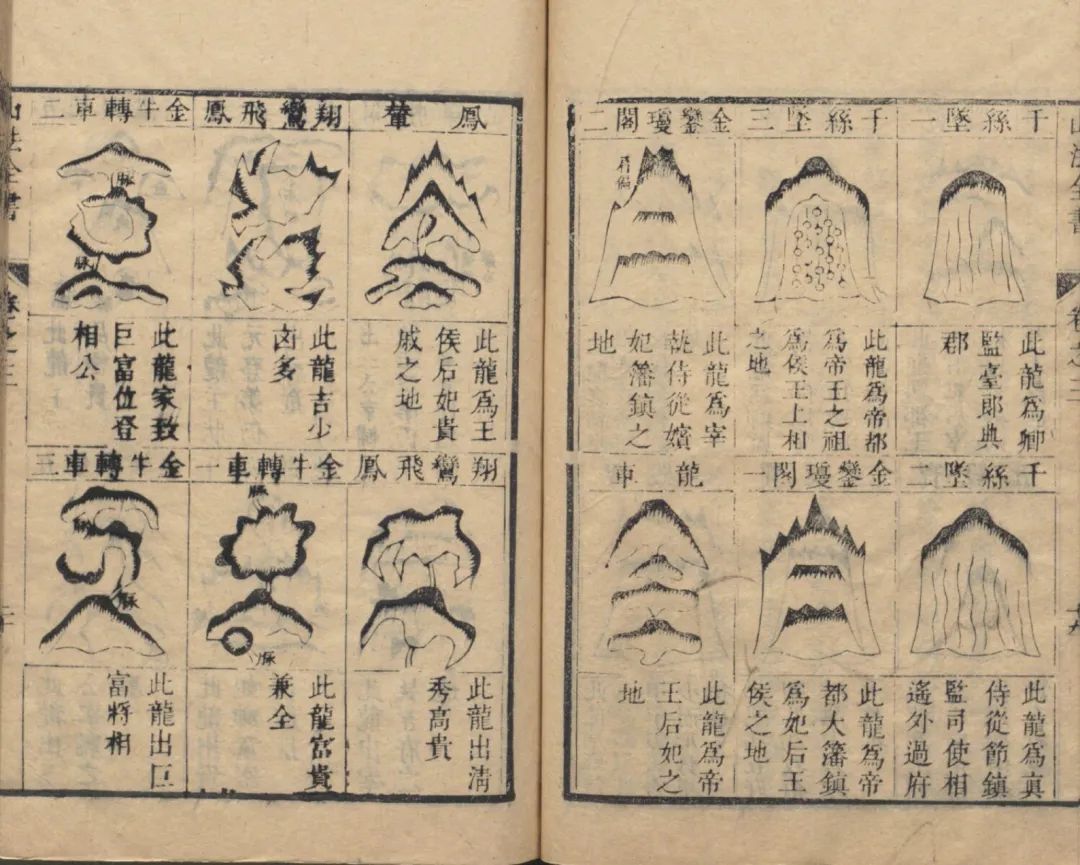 山法全書
卷之三
千絲墜一
此龍爲卿
監臺郎典
郡
千絲墜三
此龍爲帝都
爲帝王之祖
爲侯王上相
之地
金鑾瓊閣二
此龍爲宰
執侍從嬪
妃藩鎮之
地
千絲墜二
此龍爲真
侍從節鎮
監司使相
遙外過府
金鑾瓊閣一
此龍爲帝
都大藩鎮
爲妃后王
侯之地
龍車
此龍爲帝
王后妃之
地
鳳輦
此龍爲王
侯后妃貴
戚之地
翔鸞飛鳳
此龍吉少
凶多
金牛轉車二
脉
脉
此龍家致
巨富位登
相公
翔鸞飛鳳
此龍出清
秀高貴
金牛轉車一
脉
脉
此龍富貴
兼全
金牛轉車三
脉
此龍出巨
富將相
山法全書
卷之三